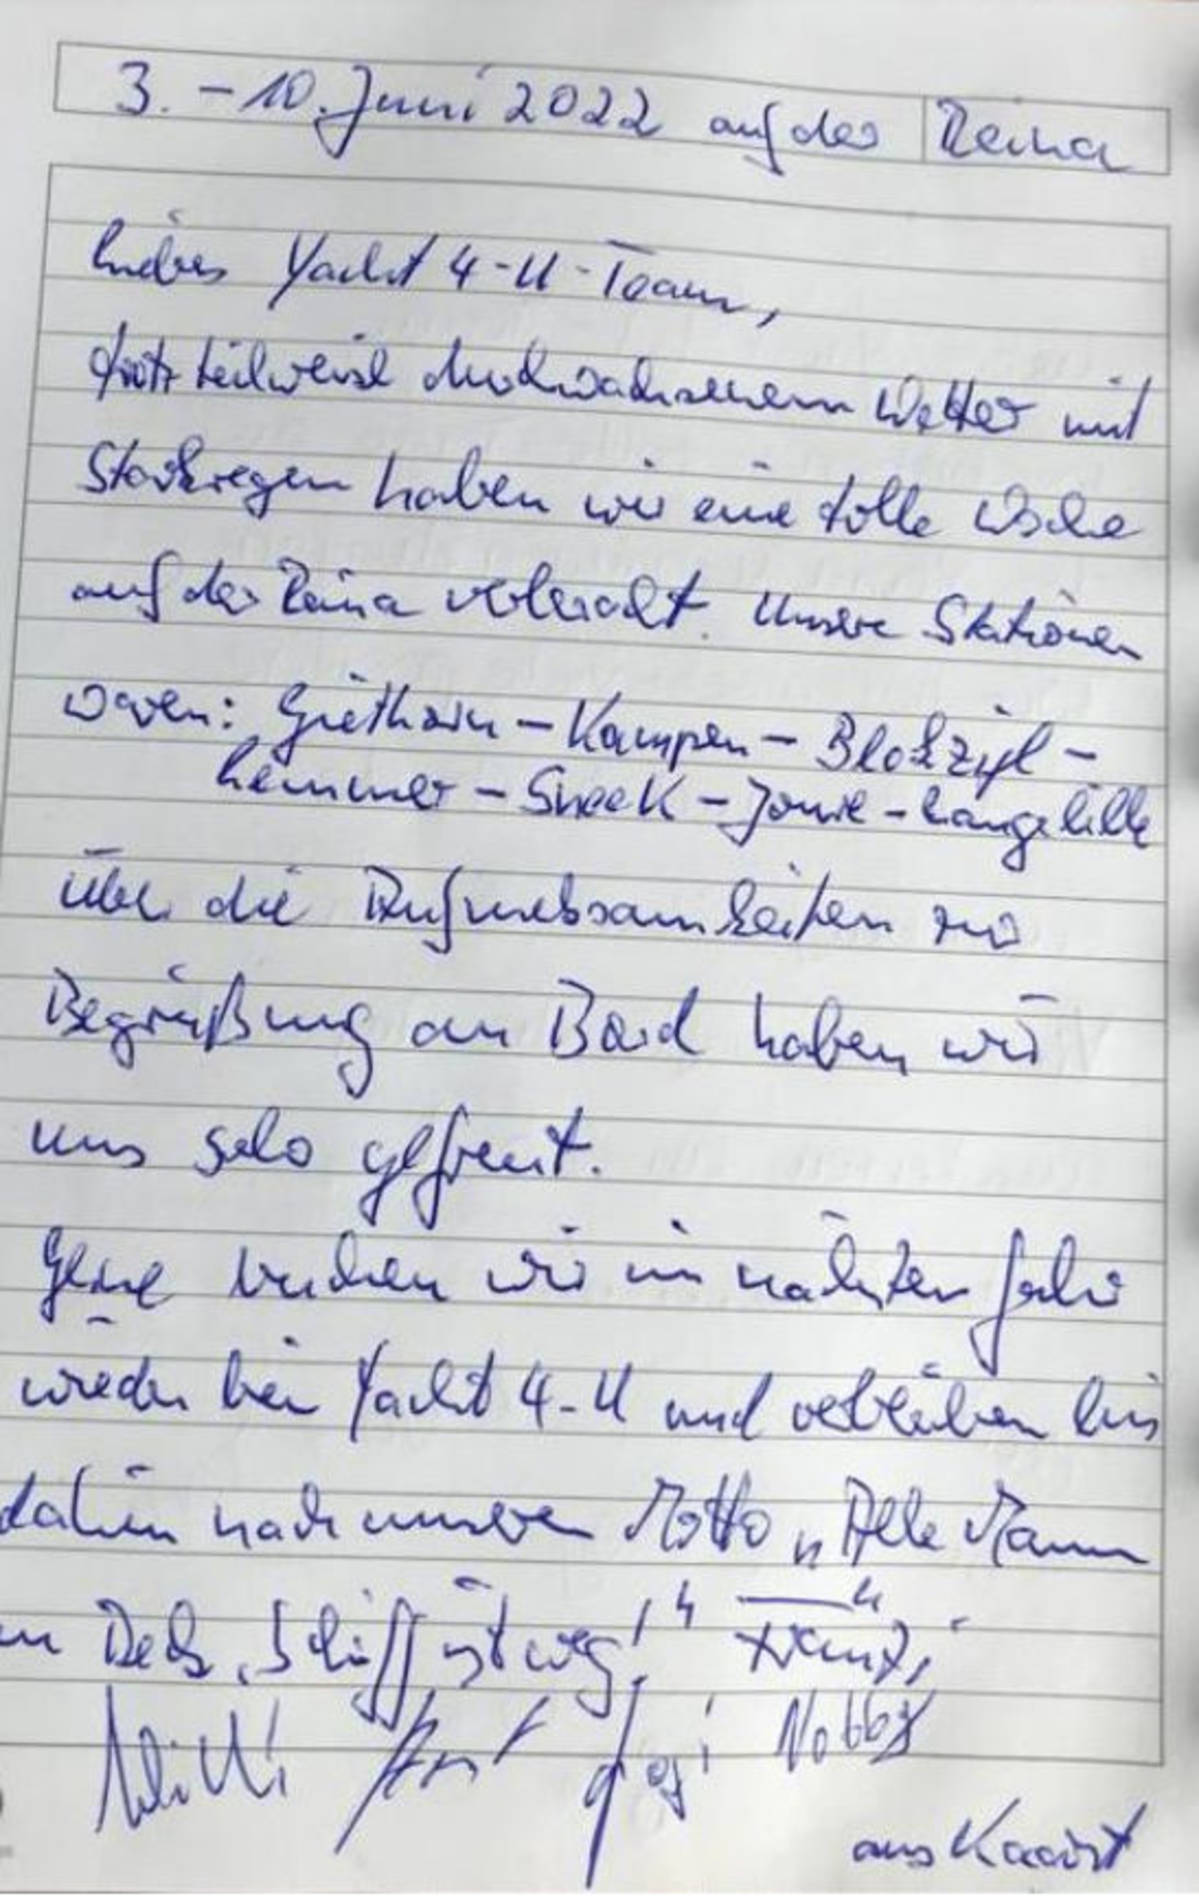 3. - 10. Juni 2022 auf der Reina
Liebes Yacht 4-U-Team,
trotz teilweise durchwachsenem Wetter mit
Starkregen haben wir eine tolle Woche
auf der Reina verbracht. Unsere Stationen
waren: Giethoorn - Kampen - Blokzijl -
Lemmer - Sneek - Joure - Langelille
Über die Aufmerksamkeiten zur
Begrüßung an Bord haben wir
uns sehr gefreut.
Gerne buchen wir im nächsten Jahr
wieder bei Yacht 4-U und verbleiben bis
dahin nach unserem Motto „Alle Mann
an Deck, Schiff ist weg!"
Willi Nobby
aus Kaarst